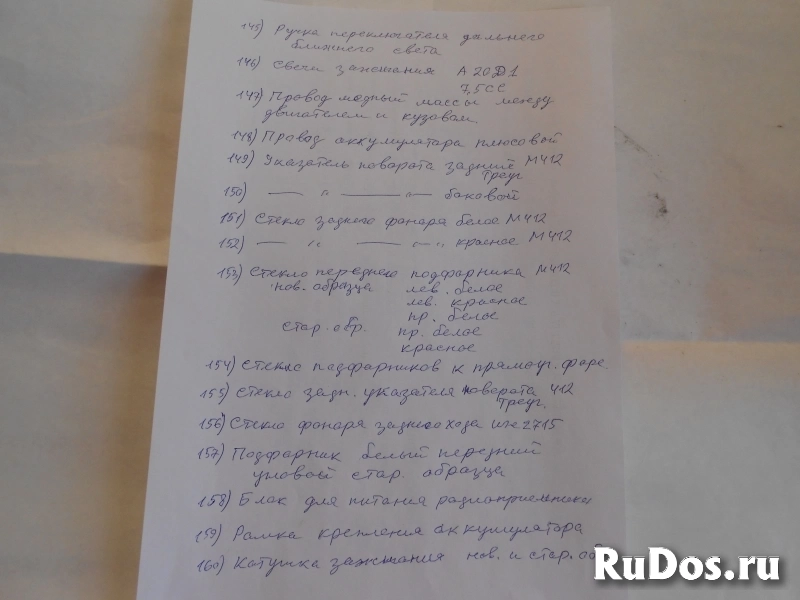 145) Ручка переключателя дальнего
ближнего света
146) Свечи зажжания А20Д1
7,5СС
147) Провод медный массы между
двигателем и кузовом
148) Провод аккумулятора плюсовой
149) Указатель поворота задний М412
треуг
150) — " — " — баковой
151) Стекло заднего фонаря белое М412
152) — " — " — " красное М412
153) Стекло переднего подфарника М412
нов. образца лев. белое
лев. красное
пр. белое
стар. обр. пр. белое
красное
154) Стекло подфарников к прямоуг. фаре
155) Стекло задн. указателя поворота 412
треуг.
156) Стекло фонаря заднего хода иж2715
157) Подфарник белый передний
уловой стар. образца
158) Блок для питания радиоприемника
159) Рамка крепления аккумулятора
160) Катушка зажжания нов. и стар. об
RuDos.ru